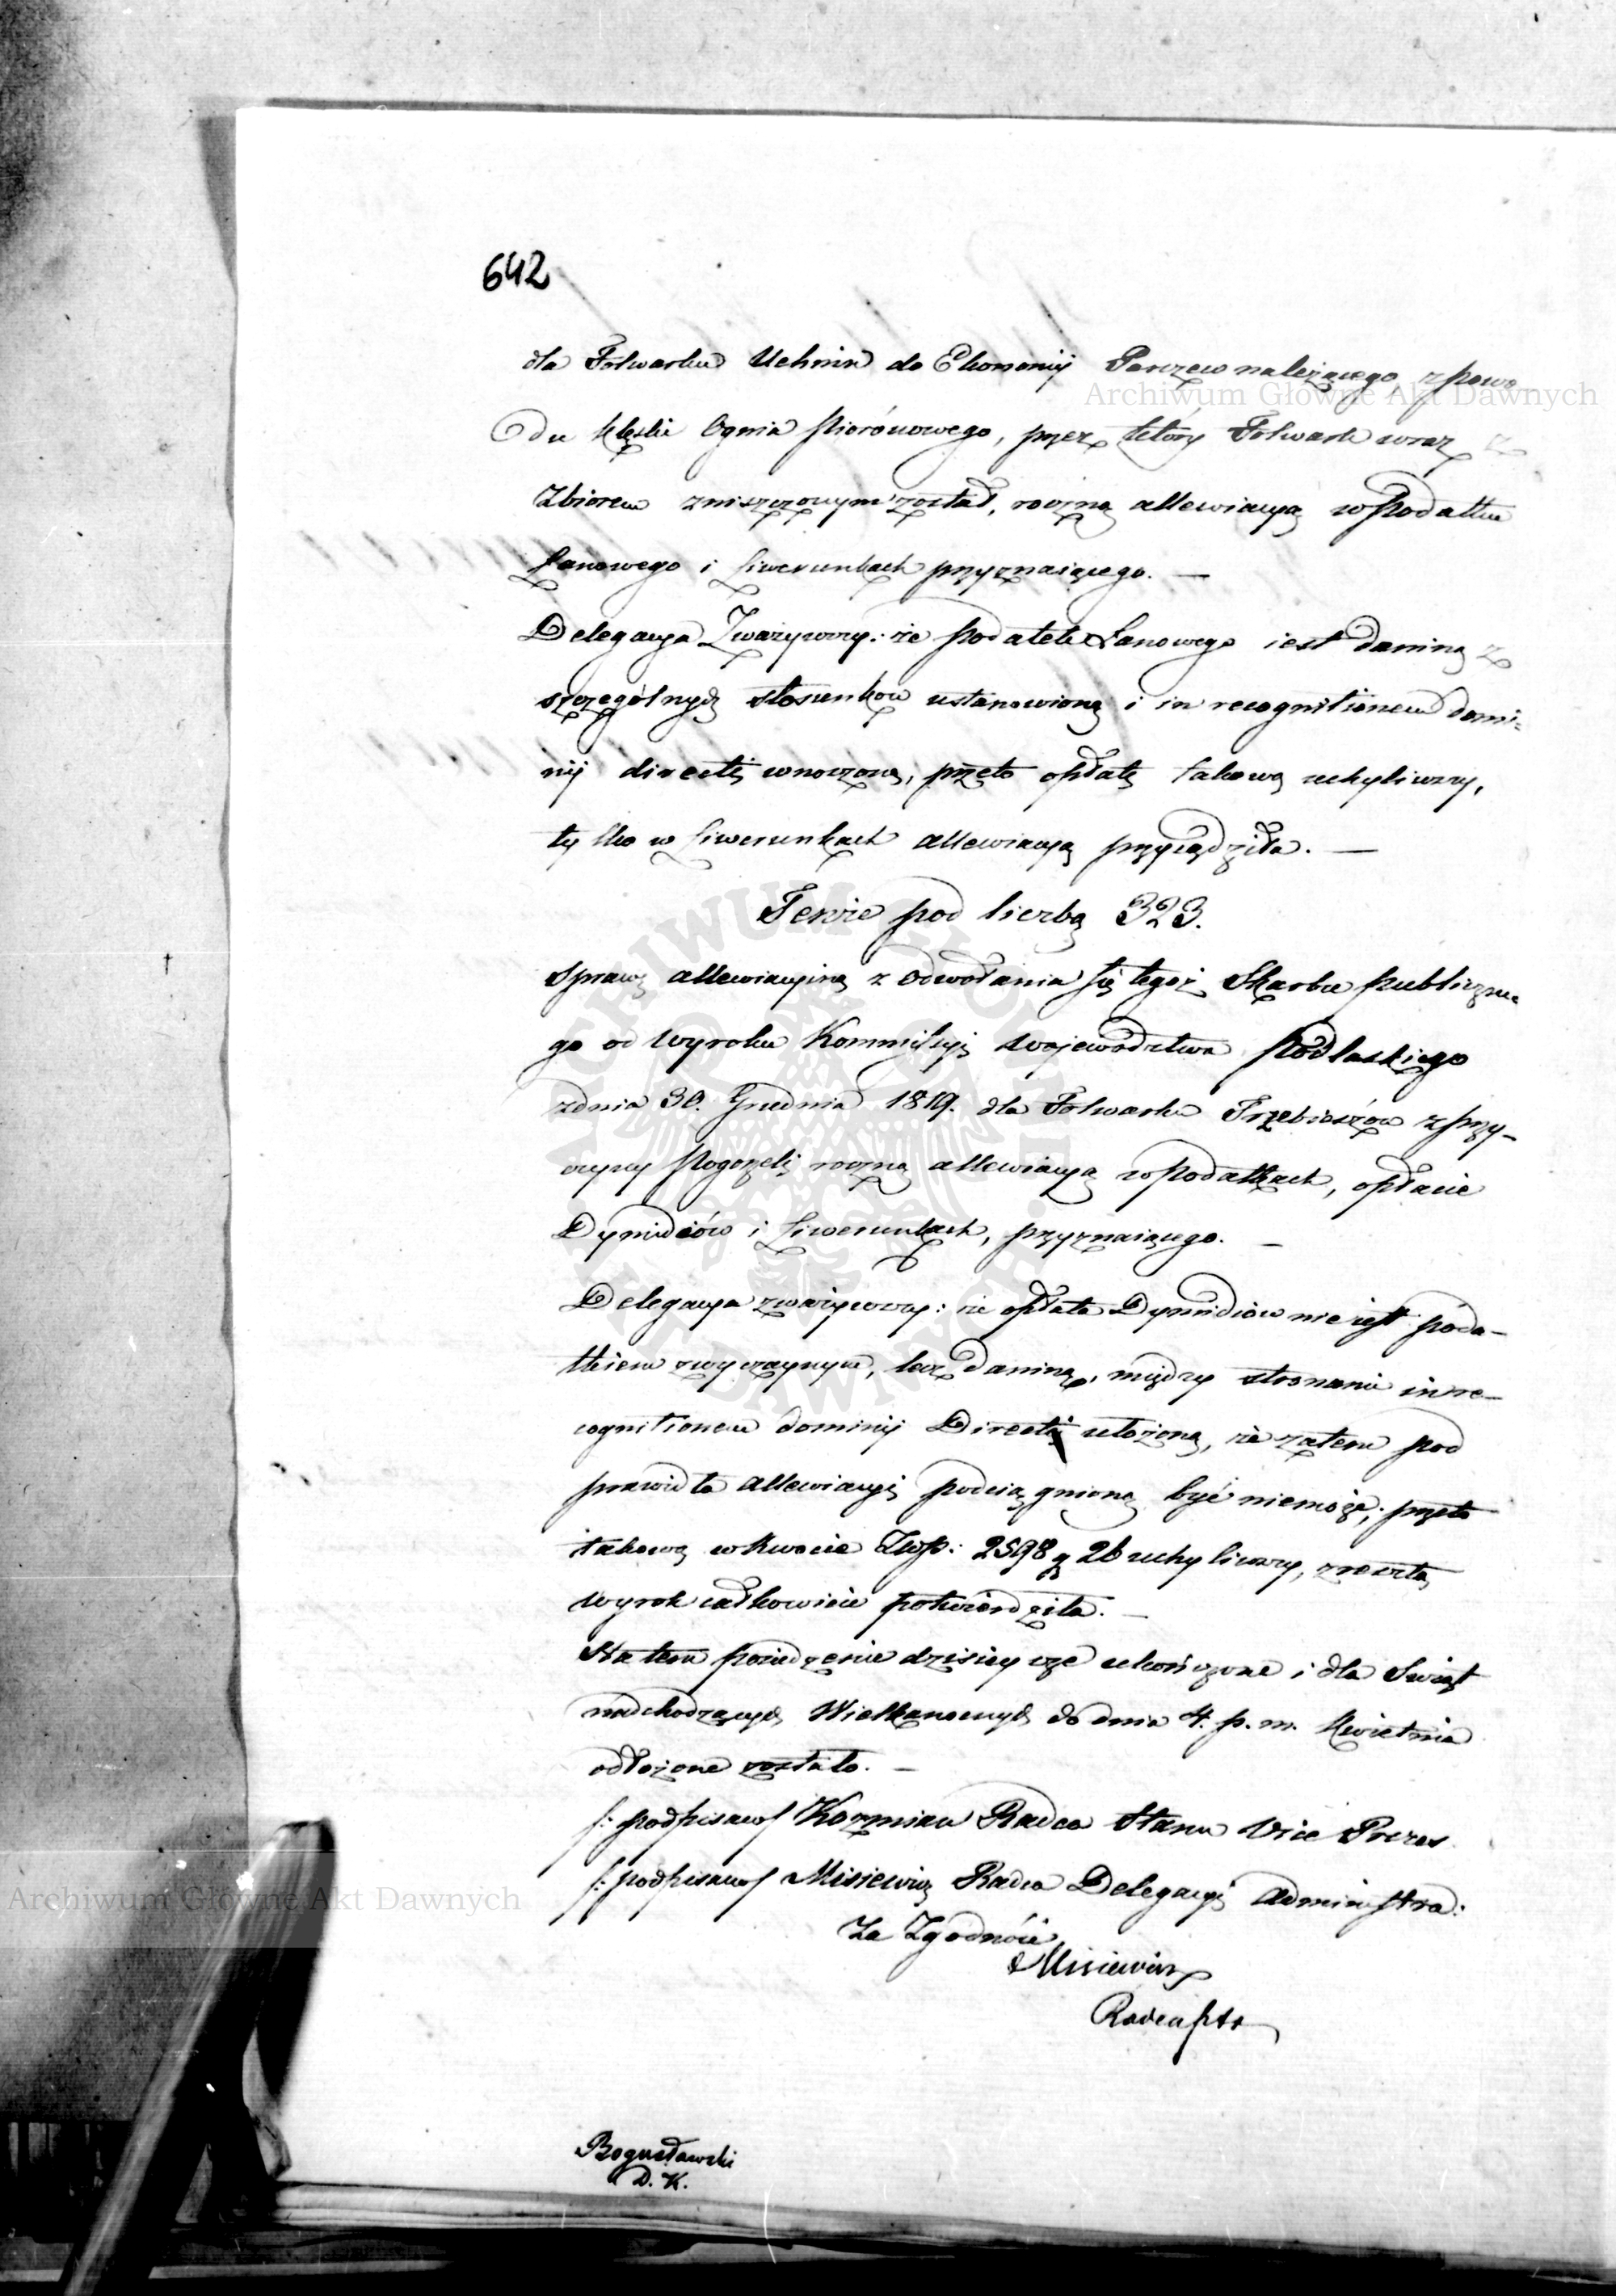 642
dla Folwarku Uchnin do Ekonomij Parczew należącego, z powo
du klęski Ognia Piorónowego, przez który Folwark wraz z
Zbiorem zniszczonym został, roczną allewiacyą w Podatku
Łanowego i Liwerunkach przyznaiącego. —
Delegacya Zważywszy: że Podatek Łanowego iest daniną z
szczególnych stosunków ustanowioną i in recognitionem domi=
nij directi wnoszoną, przeto opłatę takową uchyliwszy,
tylko w Liwerunkach allewiacyą przysądziła. —
Tenże pod liczbą 323.
Sprawę allewiacyiną z odwołania się tegoż Skarbu Publiczne
go od wyroku Kommissyi Województwa Podlaskiego
z dnia 30. Grudnia 1819. dla Folwarku Trzebieszów z przy-
czyny Pogorzeli roczną allewiacyą w Podatkach, opłacie
Dymidiów i Liwerunkach, przyznaiącego. —
Delegacya zważywszy: że opłata Dymidiów nie iest poda-
tkiem zwyczaynym, lecz daniną, między stronami in re-
cognitionem dominij Directi ułożoną, że zatem pod
prawidła allewiacyi podciągnioną być niemoże; przeto
takową w kwocie Złp: 2598 g 26 uchyliwszy, zresztą
wyrok całkowicie potwierdziła. —
Na tem posiedzenie dzisieysze ukończone i dla Swiąt
nadchodzących Wielkanocnych do dnia 4. p. m. Kwietnia
odłożone zostało. —
/: podpisano/ Kozmian Radca Stanu Vice Prezes
/: podpisano/ Misiewicz Radca Delegacyi Administra:
Za Zgodność
Misiewicz
Radca
Bogusławski
D. K.
Archiwum Główne Akt Dawnych
Archiwum Główne Akt Dawnych